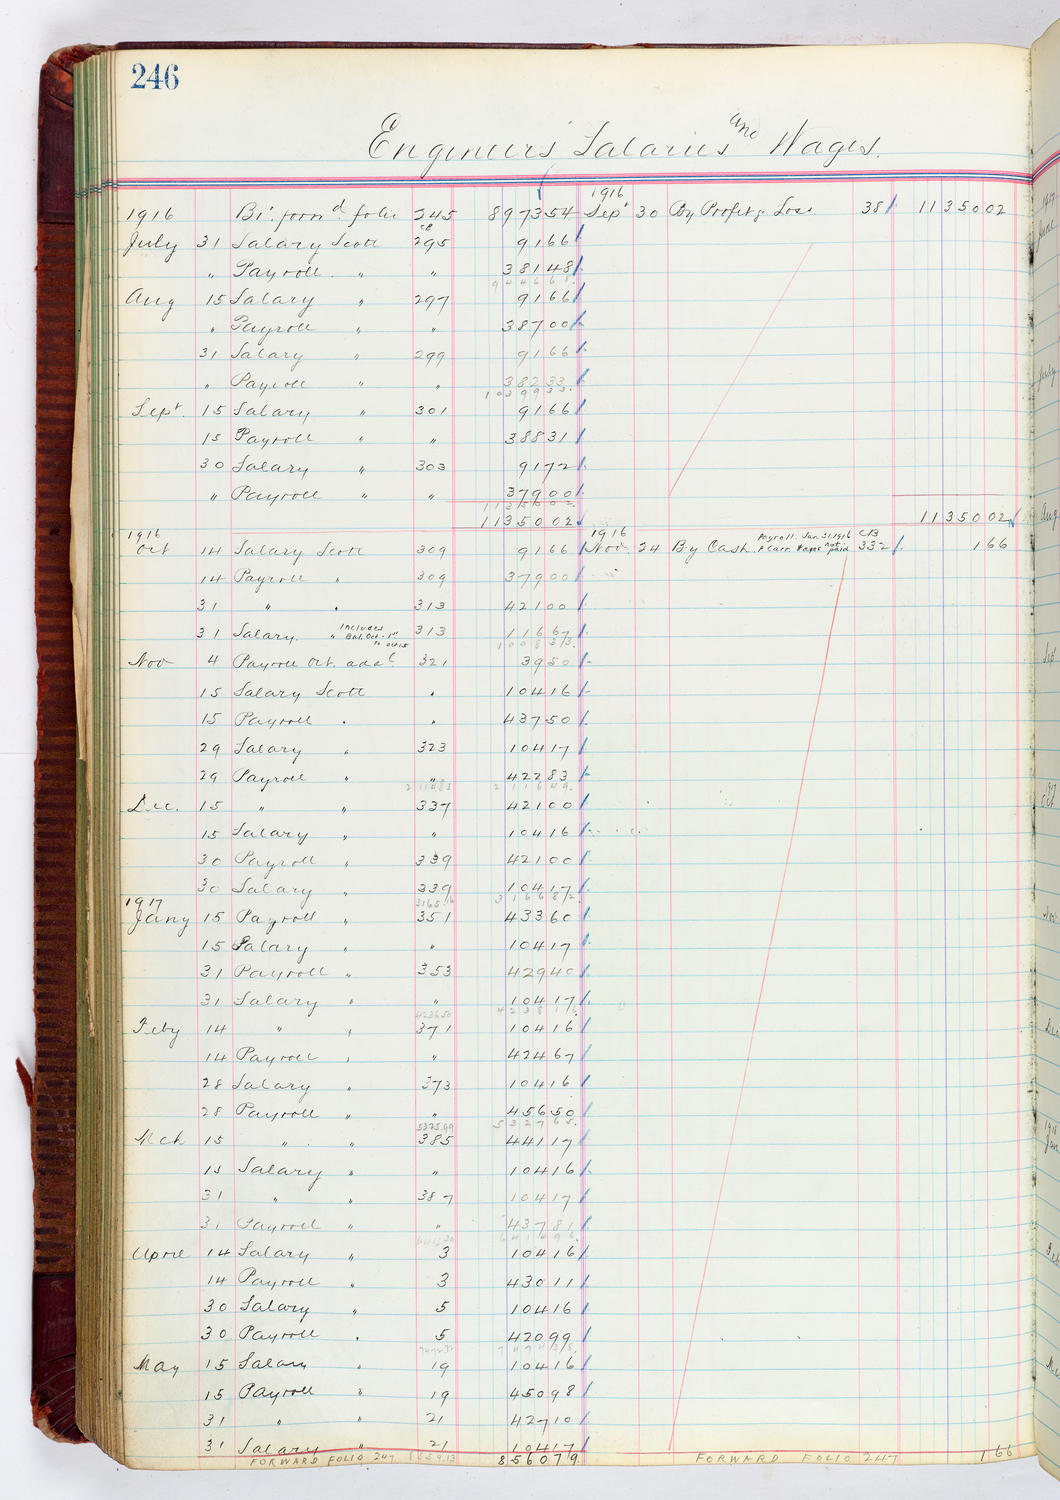 246
Engineers' Salaries and Wages.
1916 folio 245 897354 1916 Sept 30 By Profit & Loss. 38 1135002
July 31 Salary Scott CB 295 9166
" Payroll " " 38148
94466 8
Aug 15 Salary " 297 9166
" Payroll " " 38700
31 Salary " 299 9166
" Payroll " " 38233
1039933
Sept. 15 Salary " 301 9166
15 Payroll " " 38831
30 Salary " 303 9172
" Payroll " " 37900
1135002
1135002 1135002
1916 Oct 14 Salary Scott 309 9166 1916 Nov 24 By Cash. Payroll Jan 31.1916 not paid C/B 332 166
14 Payroll " 309 37900
31 " " 313 42100
31 Salary. " Includes Bal. Oct-1st to Oct 15 313 11667
100833
Nov 4 Payroll Oct. adal 321 3950
15 Salary Scott " 10416
15 Payroll " " 43750
29 Salary " 323 10417
29 Payroll " " 42283
211649
Dec. 15 " " 337 42100
15 Salary " " 10416
30 Payroll " 339 42100
30 Salary " 339 10417
316682
1917 Jany 15 Payroll " 351 43360
15 Salary " " 10417
31 Payroll " 353 42940
31 Salary " " 10417
423816
Feby 14 " " 371 10416
14 Payroll " " 42467
28 Salary " 373 10416
28 Payroll " " 45650
5325.99 532765
Mch 15 " " 385 44117
15 Salary " " 10416
31 " " 387 10417
31 Payroll " " 43781
641496
April 14 Salary " 3 10416
14 Payroll " 3 43011
30 Salary " 5 10416
30 Payroll " 5 42099
May 15 Salary " 19 10416
15 Payroll " 19 45098
31 " " 21 42710
31 Salary " 21 10417
FORWARD FOLIO 247 8559.13 856079 FORWARD FOLIO 247 166